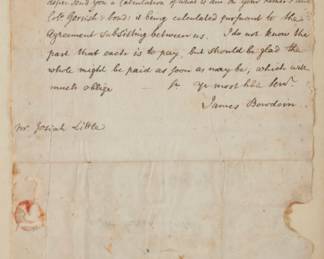 send you a Calculation of what is due on your Father's and
Colo. Gerrish's bond: it being calculated pursuant to the
Agreement subsisting between us. I do not know the
part that each is to pay, but should be glad the
whole might be paid as soon as may be, which will
much oblige Sr. Yr most hble Servt.
James Bowdoin
Mr Josiah Little